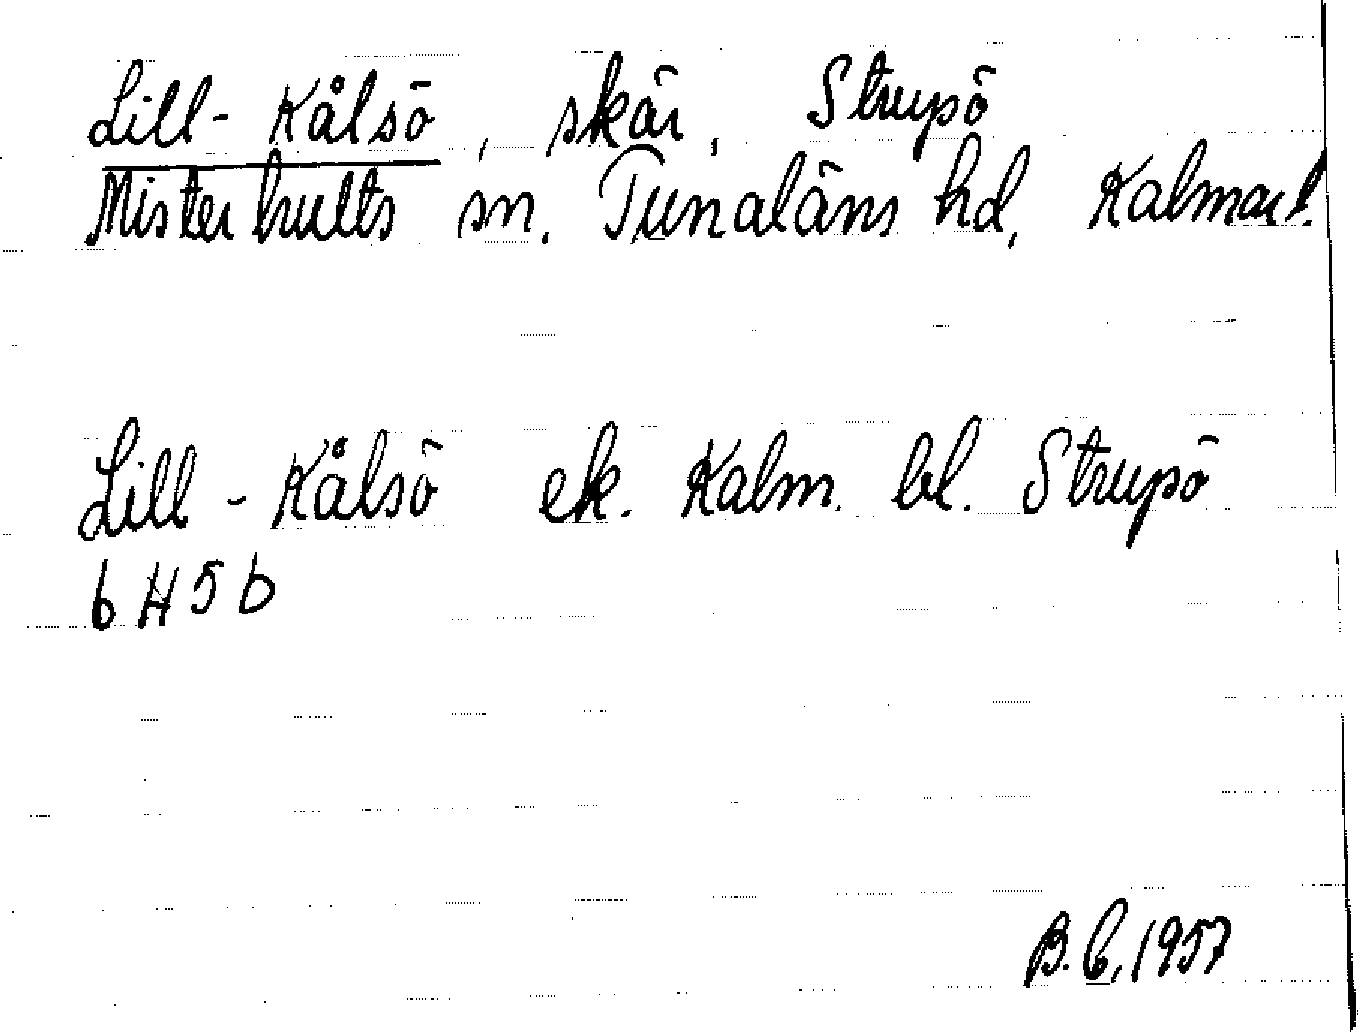 Lill-Kålsö, skär, Strupö
Misterhults sn. Tunaläns hd, Kalmar l.
Lill-Kålsö ek. Kalm. bl. Strupö
6 H 5 b
B.C, 1957